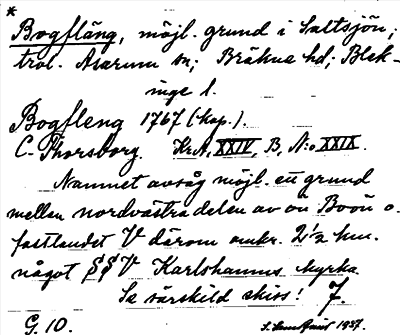 *
Bogfläng, möjl. grund i Saltsjön;
trol. Asarum sn; Bräkne hd; Blek-
inge l.
Bogfleng 1767 (kop.).
C. Thorsborg. Kr.A, XXIV, B, N:o XXIX.
Namnet avsåg möjl. en grund
mellan nordvästra delen av ön Boön o.
fastlandet V därom omkr. 2½ km.
något S V Karlshamns kyrka.
Se särskild skiss! 7.
G. 10. 1937.